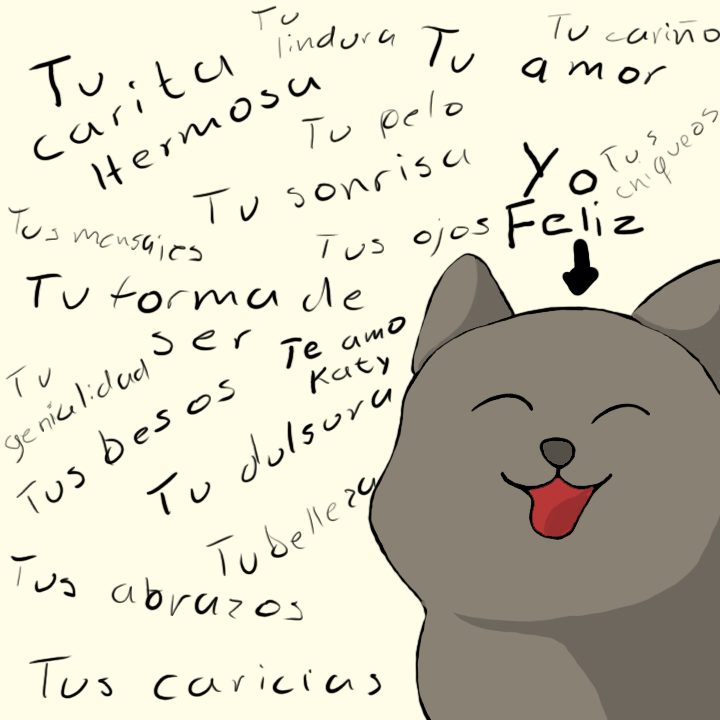 Tu
lindura
Tu cariño
Tu
amor
Tu
carita
Hermosa
Tu pelo
Tus
chiqueos
Yo
Feliz
Tu sonrisa
Tus mensajes
Tus ojos
Tu forma de
ser
Te amo
Katy
Tu
genialidad
Tus besos
Tu dulsura
Tu belleza
Tus abrazos
Tus caricias